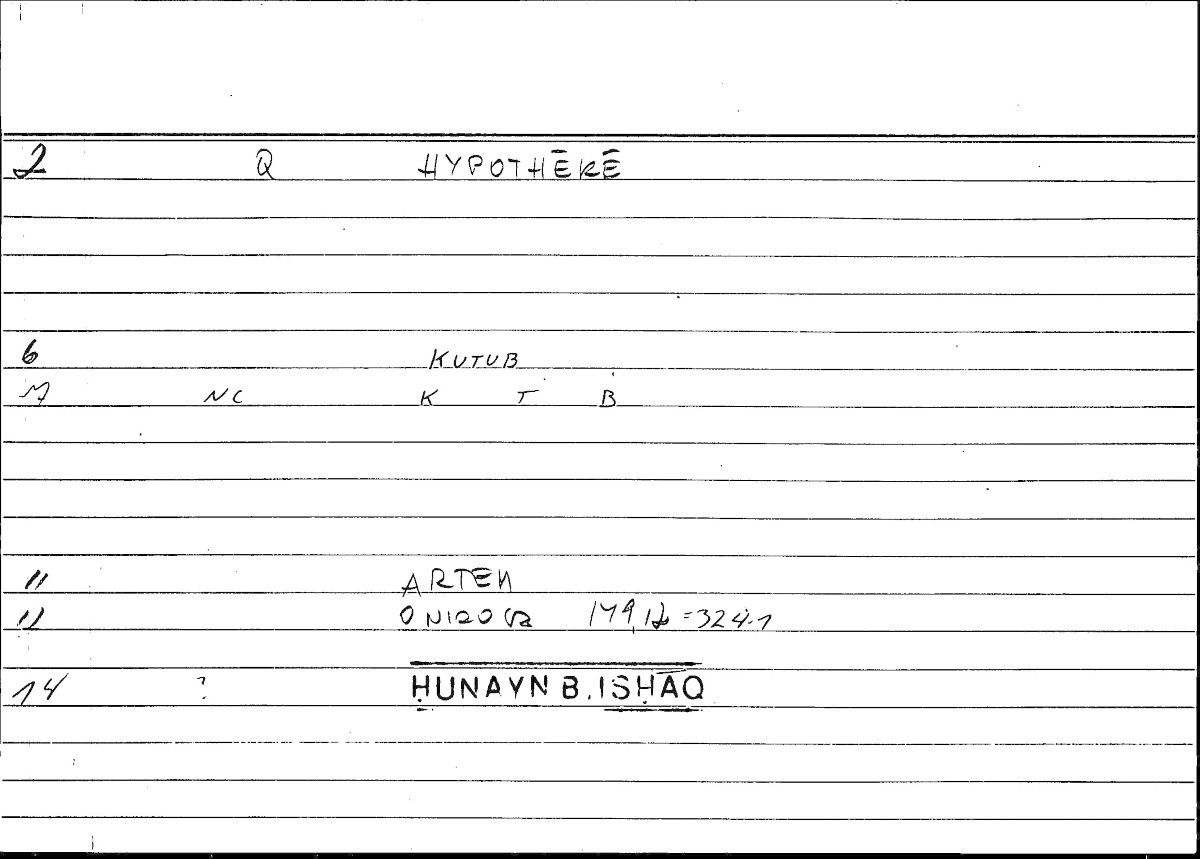 2 Q HYPOTHĒKĒ
6 KUTUB
7 NC K T B
11 ARTEM
12 ONIROCR 179,12 = 324.1
14 ? ḤUNAYN B. ISḤĀQ